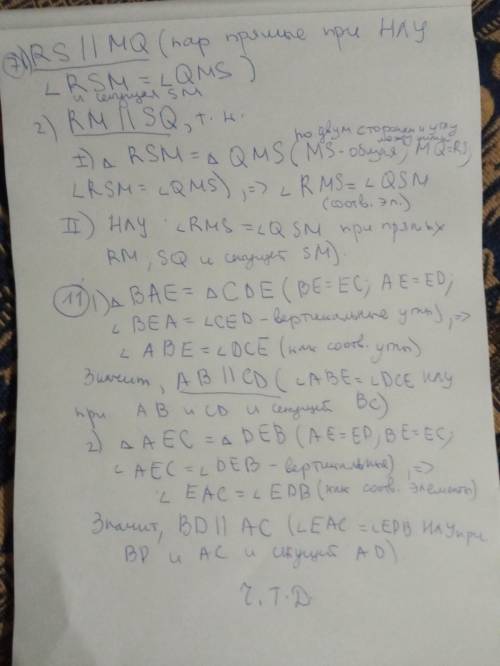 7) 1) RS || MQ (пар прямые при НЛУ
∠RSM = ∠QMS)
и секущая SM
2) RM || SQ, т.к.
по двум сторонам и углу
между ними
I) △ RSM = △ QMS (MS - общая, MQ = RS,
∠RSM = ∠QMS), => ∠RMS = ∠QSM
(соотв. эл.)
II) НЛУ ∠RMS = ∠QSM при прямых
RM, SQ и секущей SM).
11) 1) △ BAE = △CDE (BE = EC; AE = ED;
∠BEA = ∠CED - вертикальные углы), =>
∠ABE = ∠DCE (как соотв. углы)
Значит, AB || CD (∠ABE = ∠DCE НЛУ
при AB и CD и секущей BC)
2) △AEC = △DEB (AE = ED; BE = EC;
∠AEC = ∠DEB - вертикальные), =>
∠EAC = ∠EDB (как соотв. элементы)
Значит, BD || AC (∠EAC = ∠EDB НЛУ при
BD и AC и секущей AD)
Ч.Т.Д